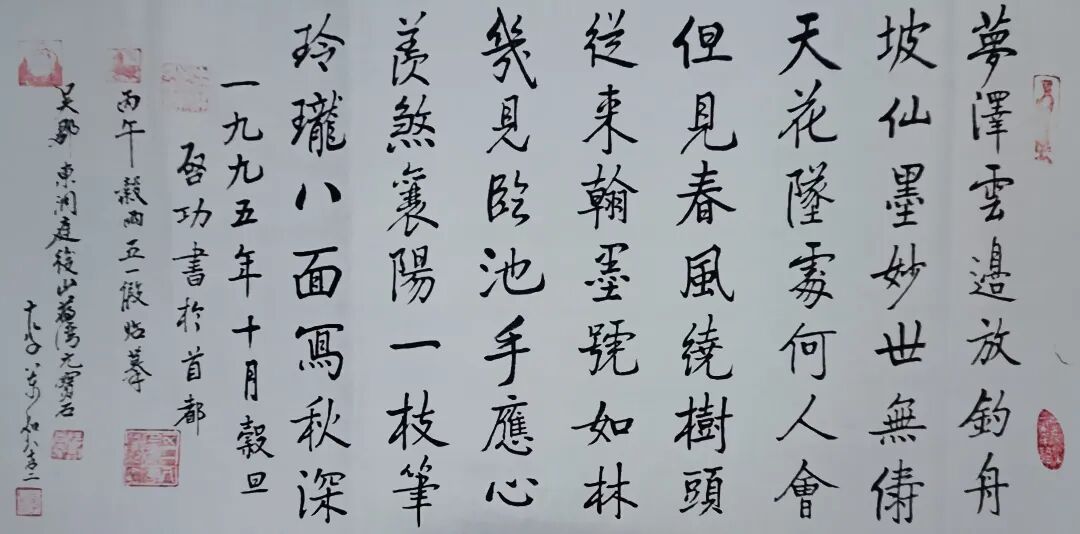 夢澤雲邉放釣舟
坡仙墨妙世無儔
天花墜處何人會
但見春風繞樹頭
從来翰墨號如林
幾見臨池手應心
羨煞襄陽一枝筆
玲瓏八面寫秋深
一九九五年十月穀旦
啓功書於首都
丙午穀雨五一假臨摹
吴郡東洞庭後山